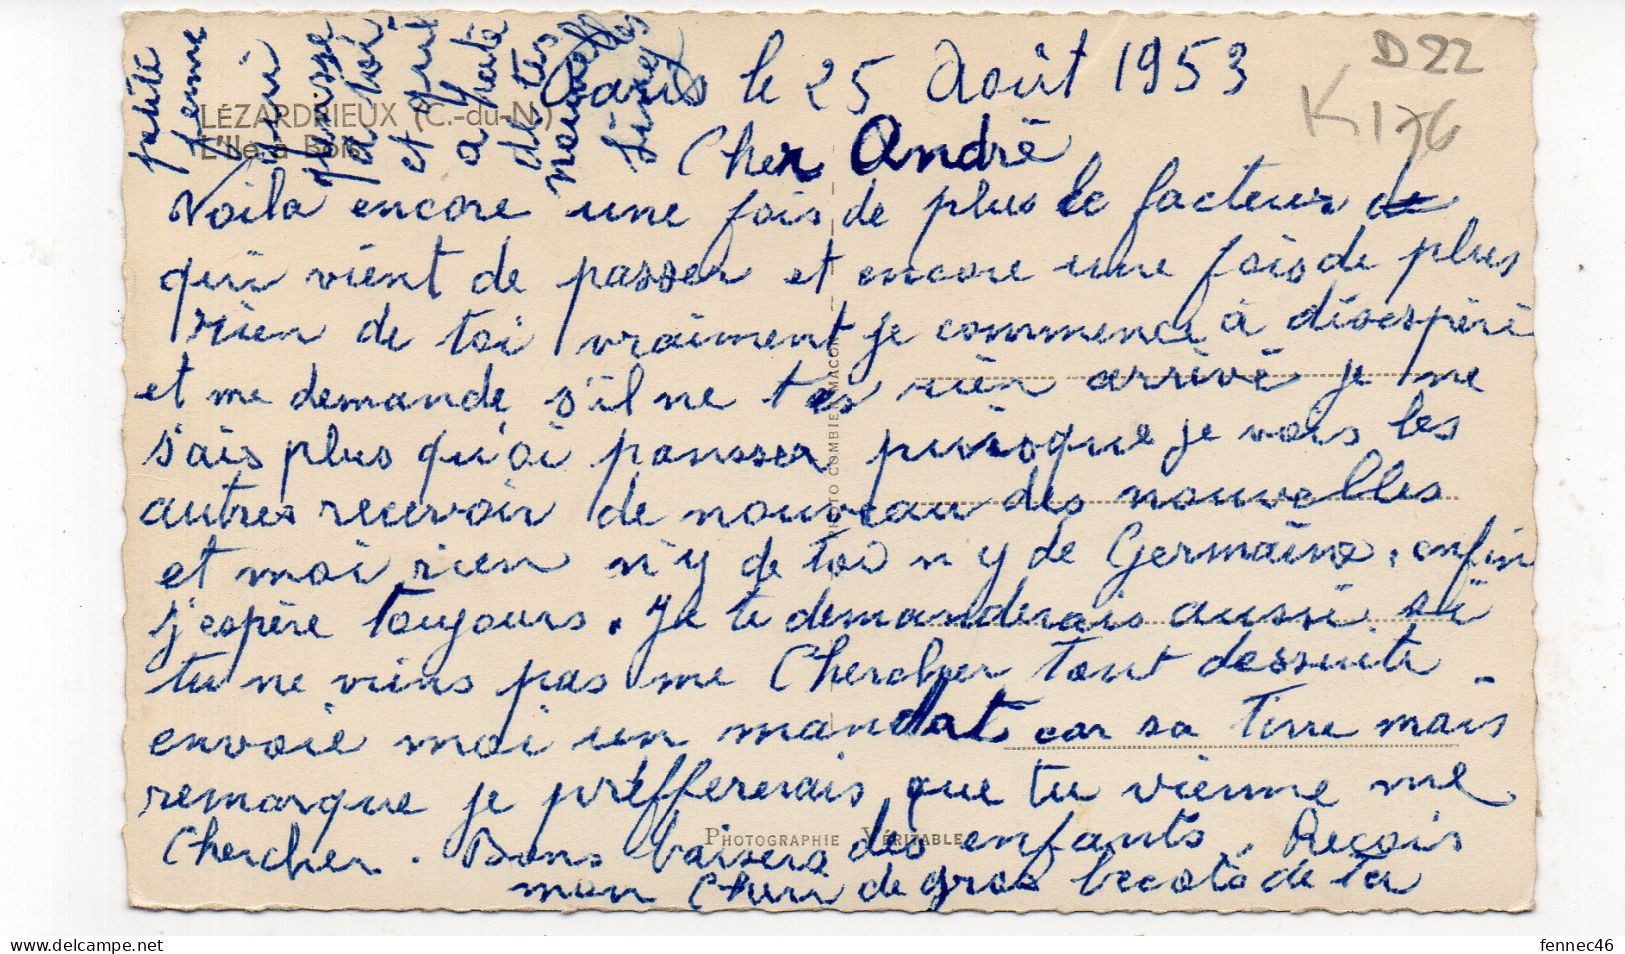 LÉZARDRIEUX (C.-du-N.)
L'Ile à Bois
D 22
K 176
le 25 Août 1953
Cher André
Voila encore une fois de plus le facteur de
qui vient de passer et encore une fois de plus
rien de toi vraiment je commence à désespéré
et me demande s'il ne t'es rien arrivé je ne
s'ais plus qu'oi pensser puisque je vois les
autres recevoir de nouveau des nouvelles
et moi rien n'y de toi n'y de Germaine, enfin
j'espère toujours. Je te demanderais aussi si
tu ne viens pas me Chercher tout dessuite
envoie moi un mandat car sa Tirre mais
remarque je préffererais que tu vienne me
Chercher. Bons baisers des enfants. Reçois
mon Cheri de gros becots de ta
petite
femme
qui
pensse
a toi
et qui
a hate
de tes
nouvelles
PHOTO COMBIER MACON
PHOTOGRAPHIE VÉRITABLE
fennec46